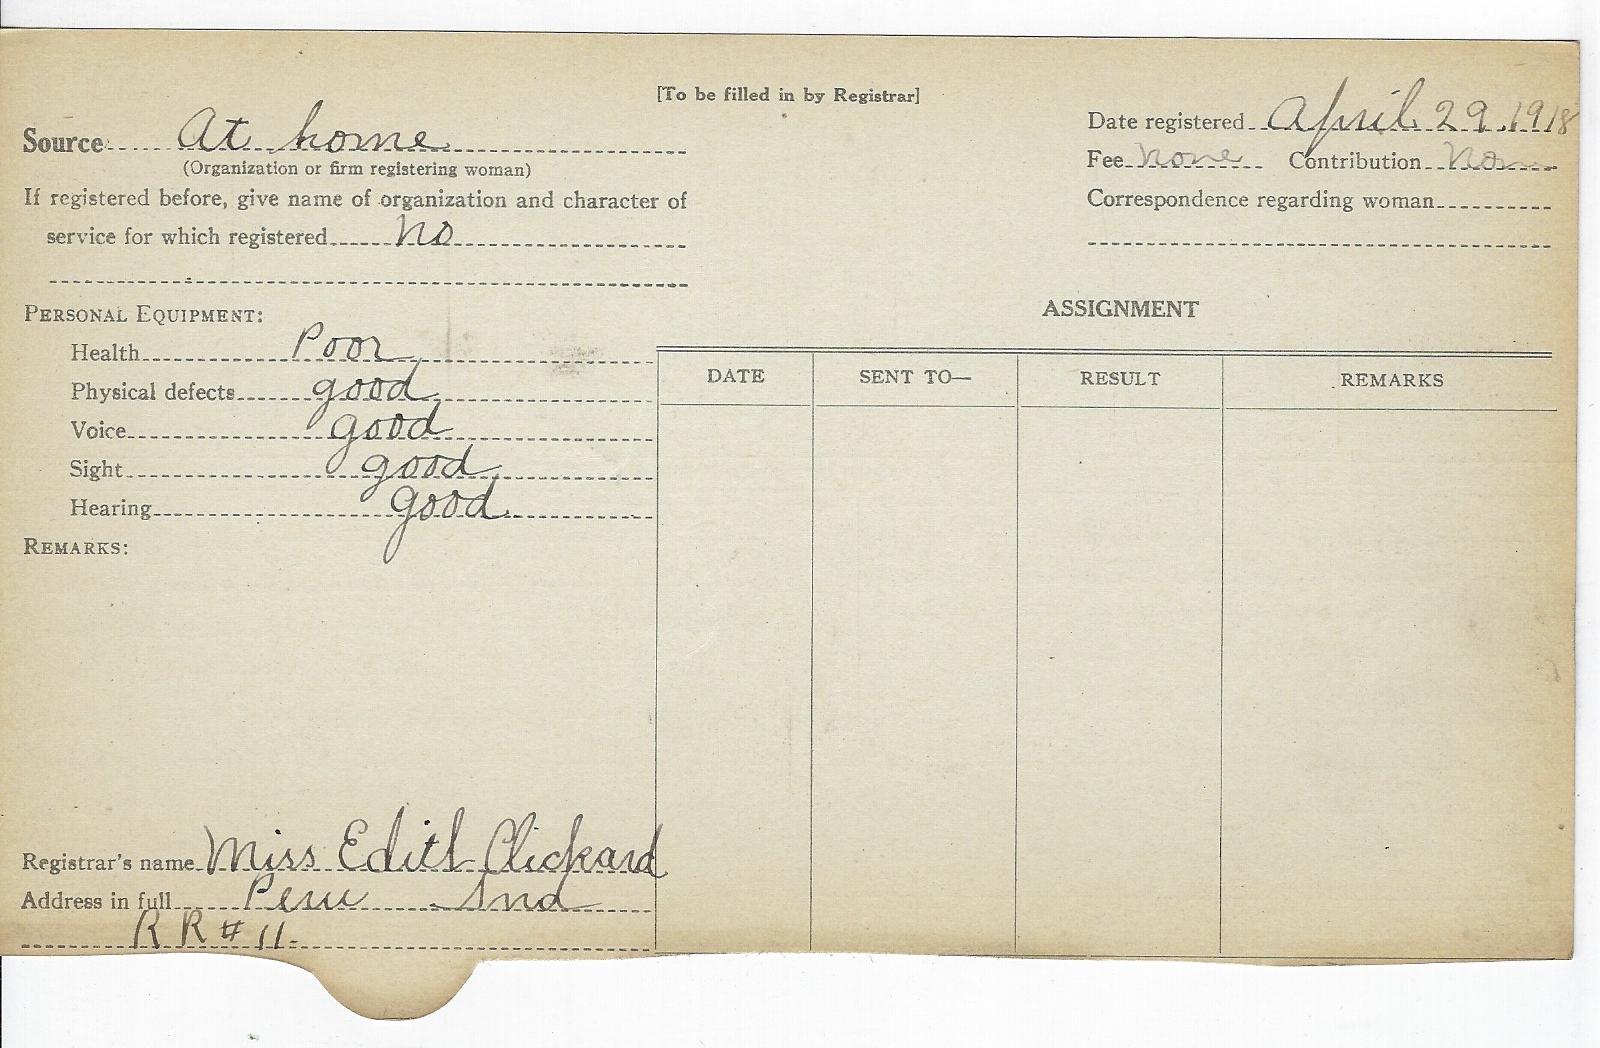 [To be filled in by Registrar]
Source At home
(Organization or firm registering woman)
If registered before, give name of organization and character of
service for which registered No
Date registered April 29 1918
Fee none Contribution None
Correspondence regarding woman
PERSONAL EQUIPMENT:
Health Poor
Physical defects good
Voice good
Sight good
Hearing good
REMARKS:
ASSIGNMENT
DATE SENT TO— RESULT REMARKS
Registrar's name Miss Edith Clickard
Address in full Peru Ind
R R # 11.